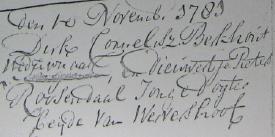 den 10 Novemb. 1783
Dirk Cornelisz Beckhorst
Weduwnaar, en Dieuwertje Pieters
Roosendaal Jonge Dogter
beyde Van Wervershoof